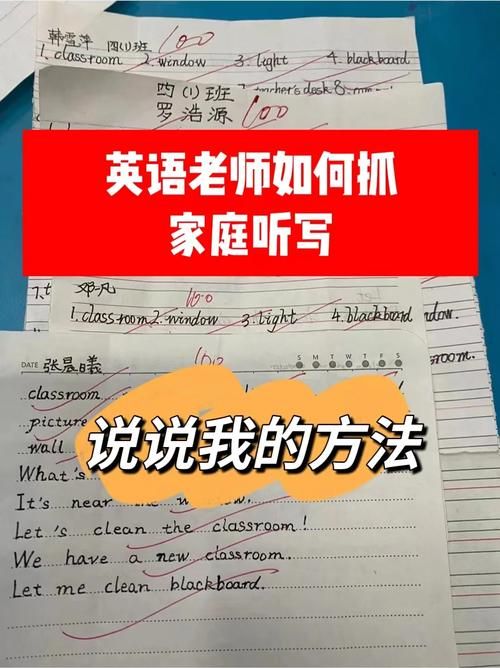 韩雪萍 四(1)班 100
1. classroom 2. window 3. light 4. blackboard
四(1)班
罗浩源 100
teacher's desk 8.
英语老师如何抓
家庭听写
邓凡 100
1. classroom 2. window 3. light 4. blackboard
window.
DATE 张晨曦 100 S M T W T F S
classroom
picture
wall
room.
说说我的方法
What's
It's near the window.
Let's clean the classroom!
We have a new classroom.
Let me clean blackboard.